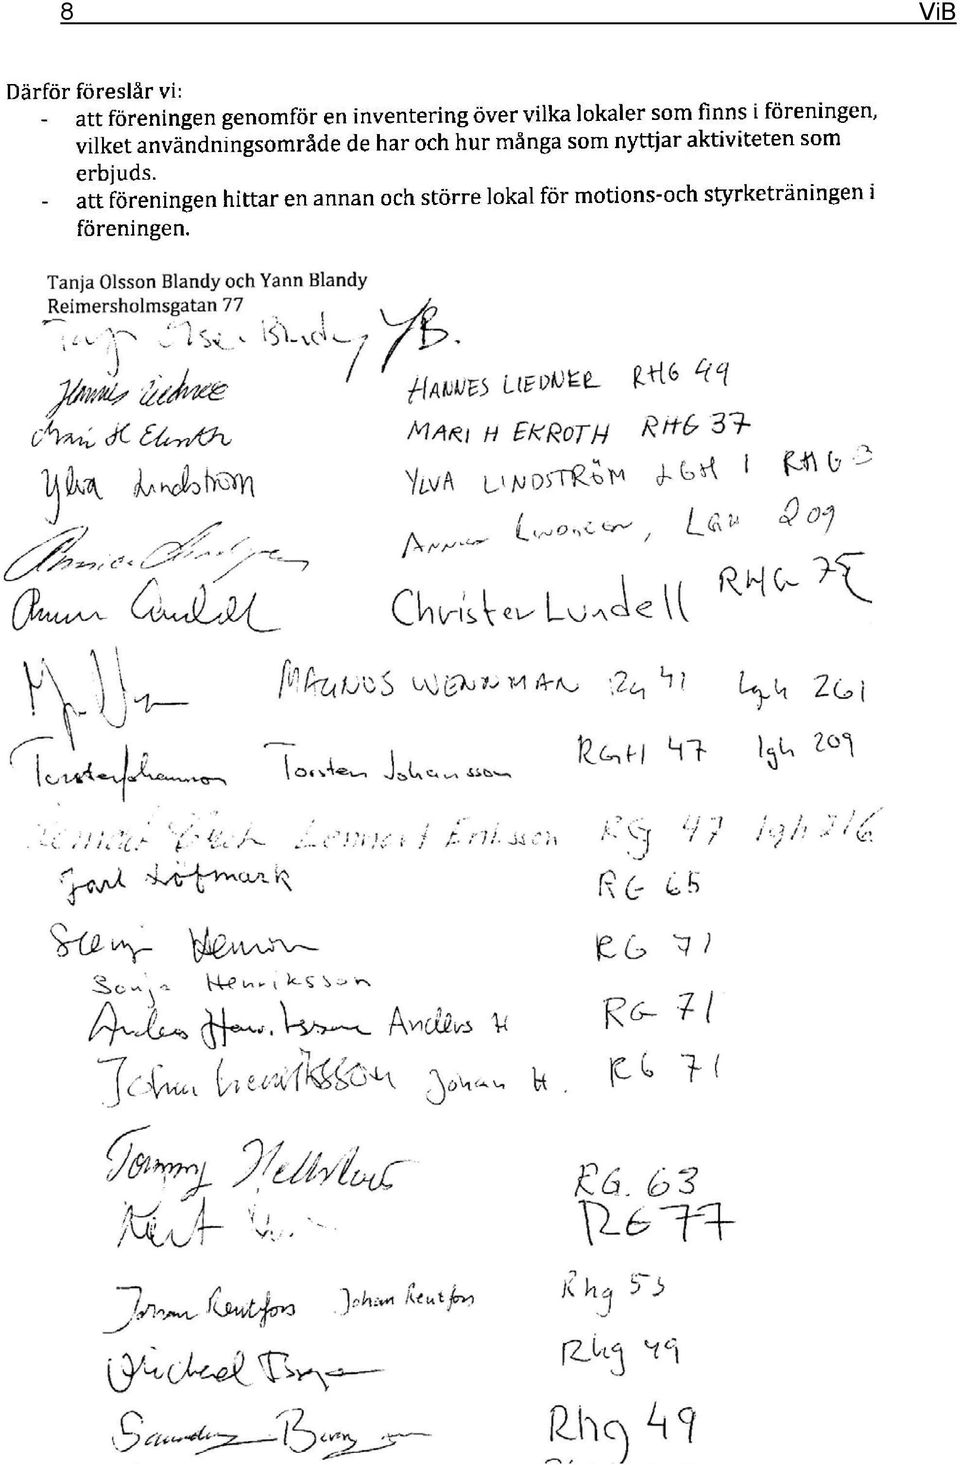 8 ViB
Därför föreslår vi:
- att föreningen genomför en inventering över vilka lokaler som finns i föreningen,
vilket användningsområde de har och hur många som nyttjar aktiviteten som
erbjuds.
- att föreningen hittar en annan och större lokal för motions-och styrketräningen i
föreningen.
Tanja Olsson Blandy och Yann Blandy
Reimersholmsgatan 77
YB.
Hannes Liedner HANNES LIEDNER RHG 49
Mari H Ekroth MARI H EKROTH RHG 37
Ylva Lindström YLVA LINDSTRÖM LGH 1 RHG 3
Annica 209
Christer Lundell RHG
MAGNUS WENNMAN RG 41 lgh 261
Torsten Johansson Torsten Johansson RGH 47 lgh 209
Lennart Eriksson RG 47 lgh 216
Jarl Löfmark RG 65
RG 71
Sonja Henriksson
Anders Anders H RG 71
Johan Henriksson Johan H. RG 71
Tommy RG. 63
RG 77
Johan Rentfors Johan Rentfors Rhg 53
Michael Rhg 49
Rhg 49